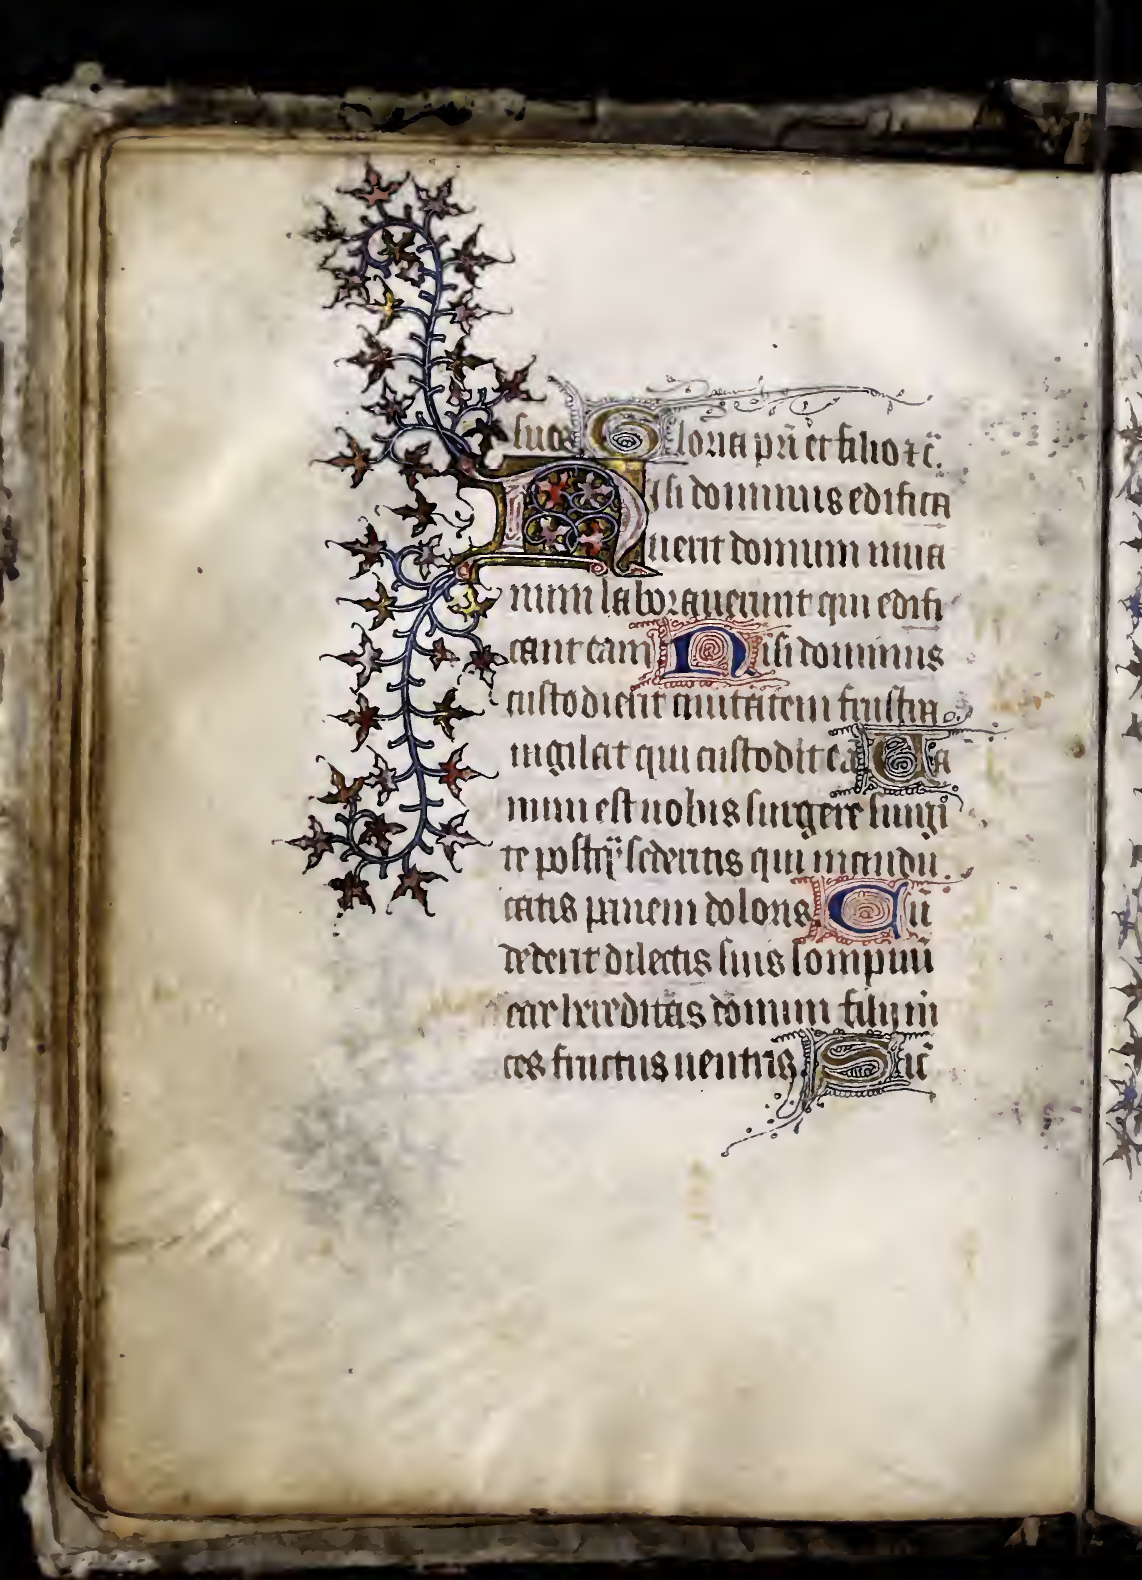 suos Gloria pri et filio et c̄.
Nisi dominus edifica
uerit domum inua
num laborauerunt qui edifi
cant eam Nisi dominus
custodierit ciuitatem frustra
uigilat qui custodit eā Ua
num est uobis surgere surgi
te postq̄ sederitis qui mandu
catis panem doloris Cū
dederit dilectis suis sompnū
ecce hereditas domini filij m̄
ces fructus uentris Sic̄